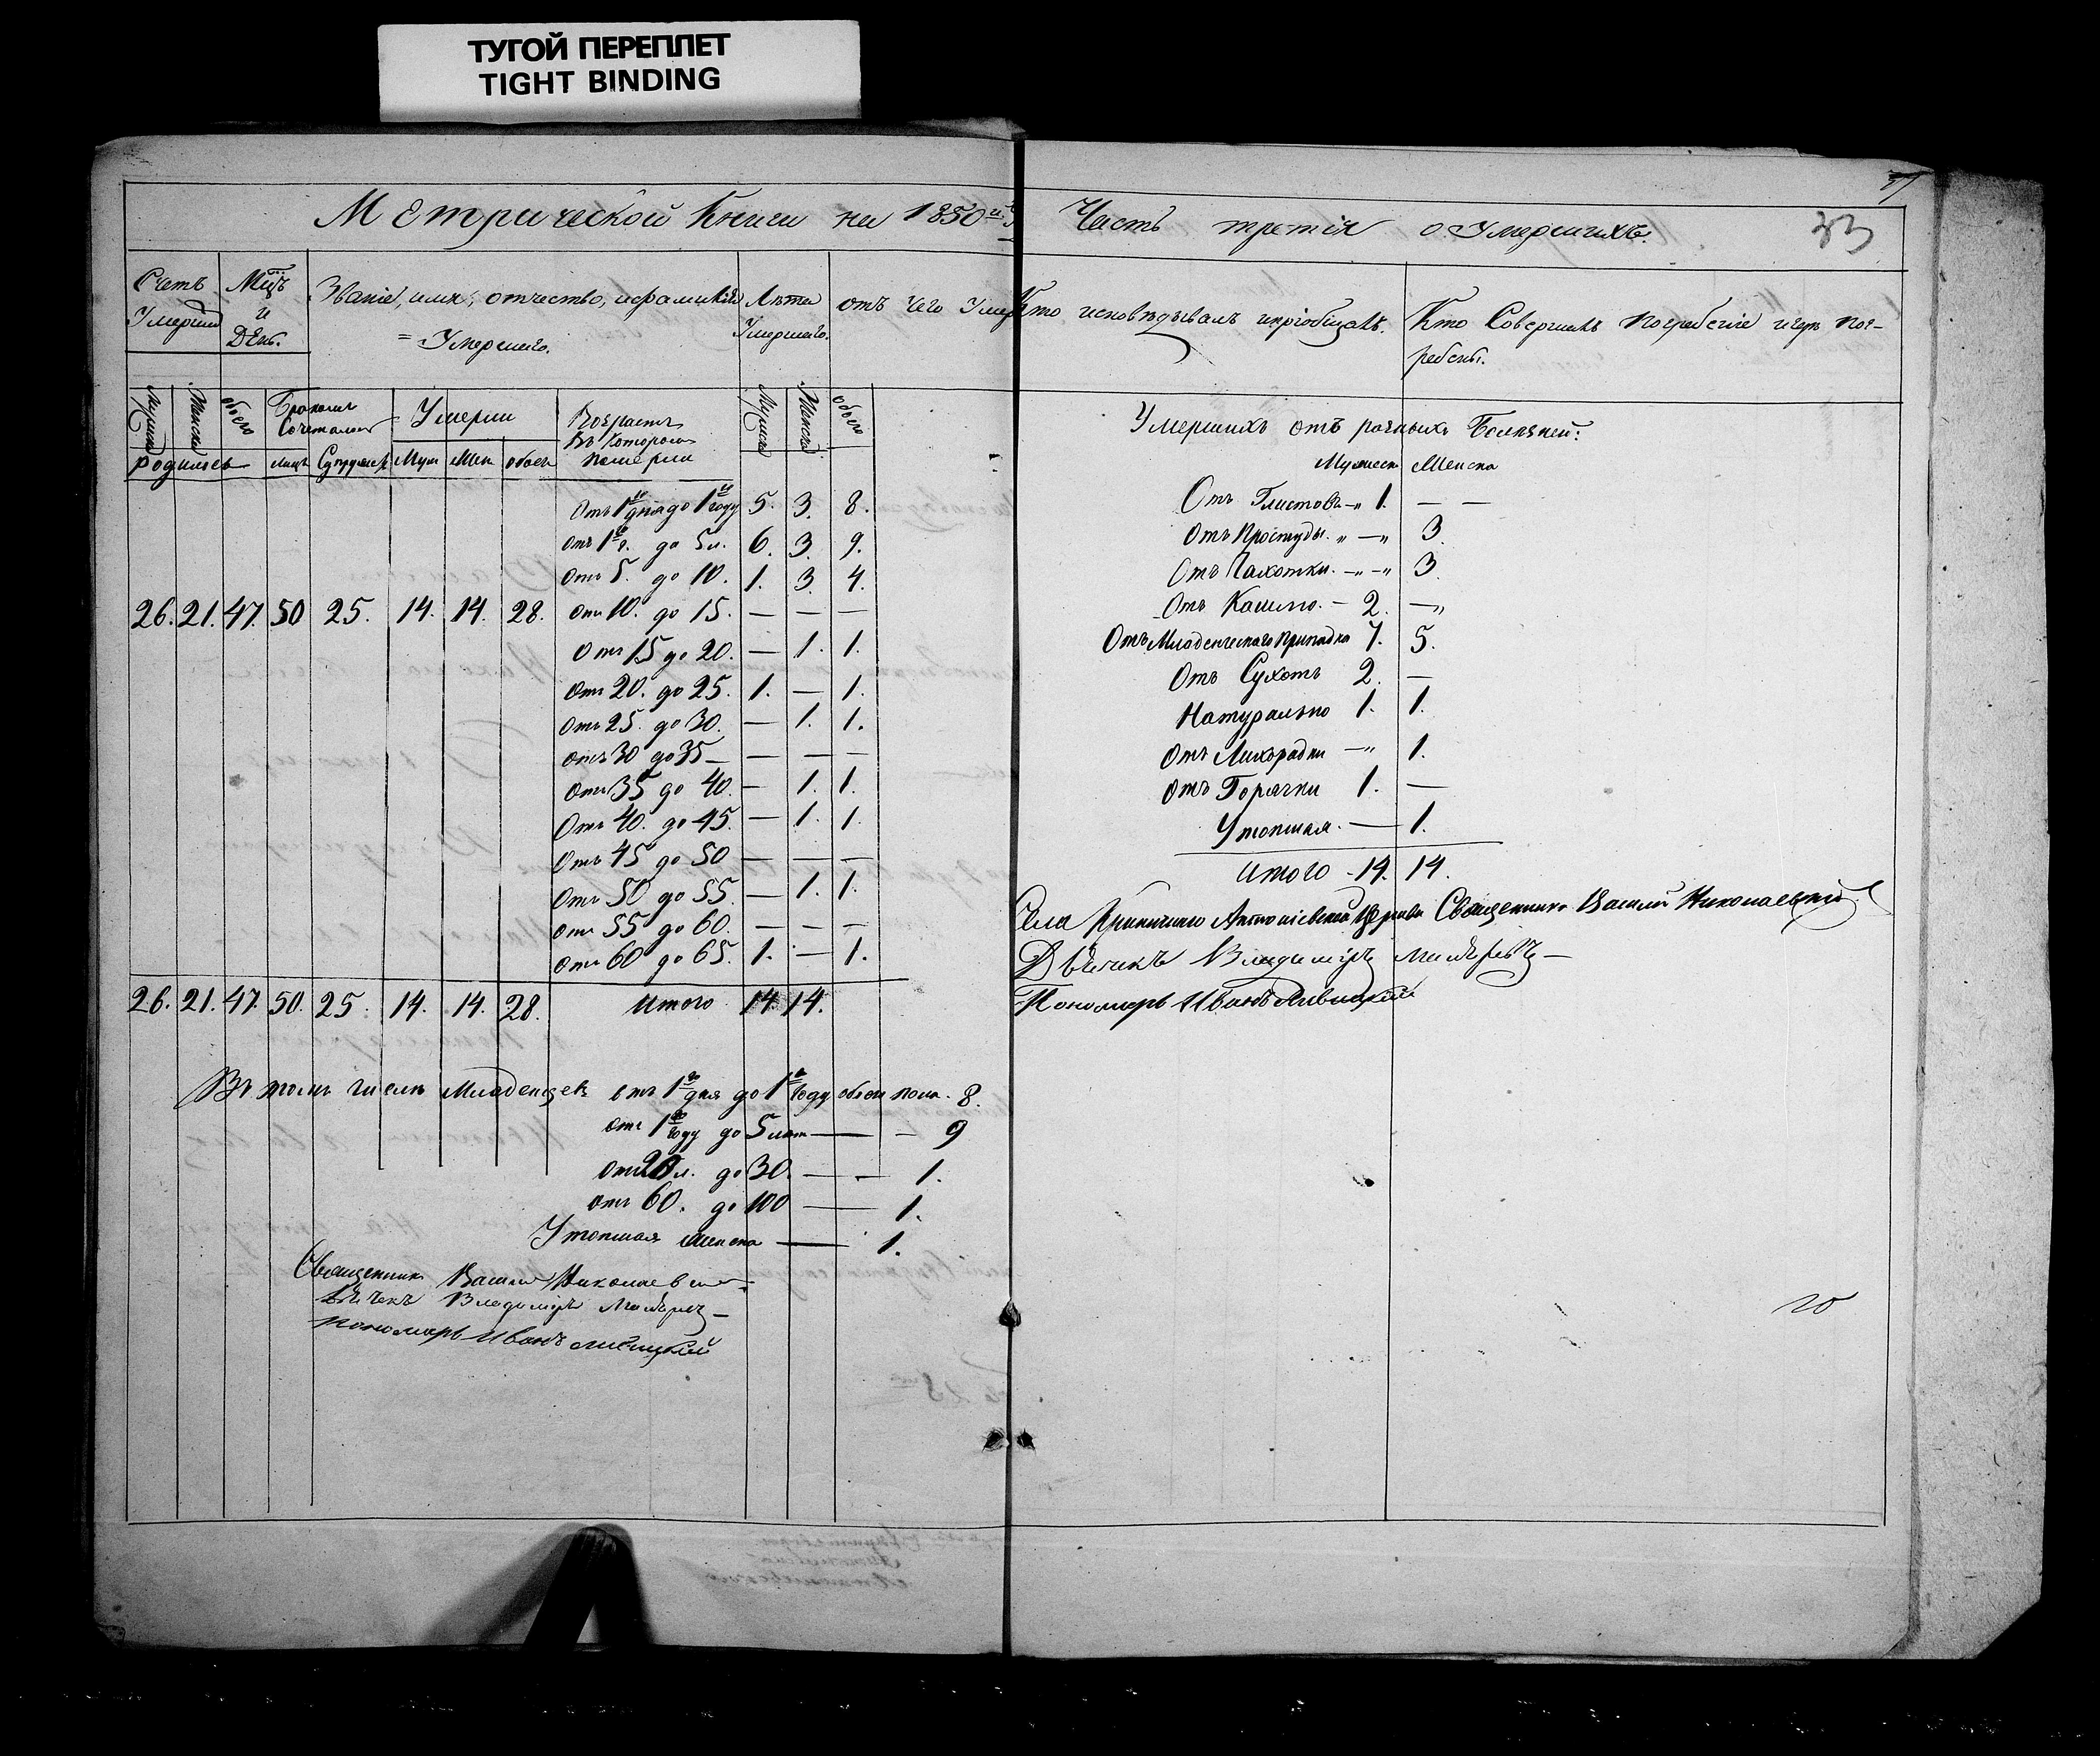 ТУГОЙ ПЕРЕПЛЕТ
TIGHT BINDING
Метрической Книги на 1850й
Счетъ Умерших
Мцъ и День.
Званіе, имя, отчество, и фамилія Умершаго.
Лѣта Умершаго.
отъ чего Умер
Мужеск Женска обоего
родилось
Бракомъ Сочеталось
лицъ Супружес
Умерли
Муж Жен обоего
Возрастъ въ котором померли
Мужеск Женска обоего
Отъ 1го дня до 1го году 5. 3. 8.
отъ 1г. до 5л. 6. 3. 9.
отъ 5. до 10. 1. 3. 4.
26. 21. 47. 50 25. 14. 14. 28. отъ 10. до 15. — — —
Отъ 15 до 20. — 1. 1.
отъ 20. до 25. 1. — 1.
Отъ 25. до 30. — 1. 1.
отъ 30 до 35 — — — —
Отъ 35 до 40. — 1. 1.
Отъ 40. до 45. — 1. 1.
Отъ 45 до 50 — — —
Отъ 50 до 55. — 1. 1.
Отъ 55 до 60. — — —
Отъ 60 до 65. 1. — 1.
26. 21. 47. 50. 25. 14. 14. 28. Итого 14. 14.
Въ томъ числѣ Младенцевъ отъ 1го дня до 1го году обоего пола. 8.
отъ 1го году до 5 лѣт — — 9
отъ 20 л. до 30. — — 1.
отъ 60. до 100 — 1.
Утопшая женска — 1.
Священник Василій Николаевскій
Дьячекъ Владиміръ
пономарь Иванъ
Часть третія о Умершихъ.
33
Кто исповѣдывалъ и пріобщалъ.
Кто Совершалъ погребеніе и гдѣ погребены.
Умершихъ отъ разныхъ Болѣзней:
Мужеск Женска
Отъ Глистовъ 1. — —
Отъ Простуды. „ — „ 3.
Отъ Чахотки. — „ — „ 3.
Отъ Кашлю. — 2. — „
Отъ Младенческаго припадка 7. 5.
Отъ Сухотъ 2. —
Натурально 1. 1.
Отъ Лихорадки — „ 1.
Отъ Горячки 1. —
Утопшая. — 1.
Итого 14. 14.
Села Криничино Антоніевской Церкви Священникъ Василій Николаевскій
Дьячекъ Владиміръ
Пономарь Иванъ